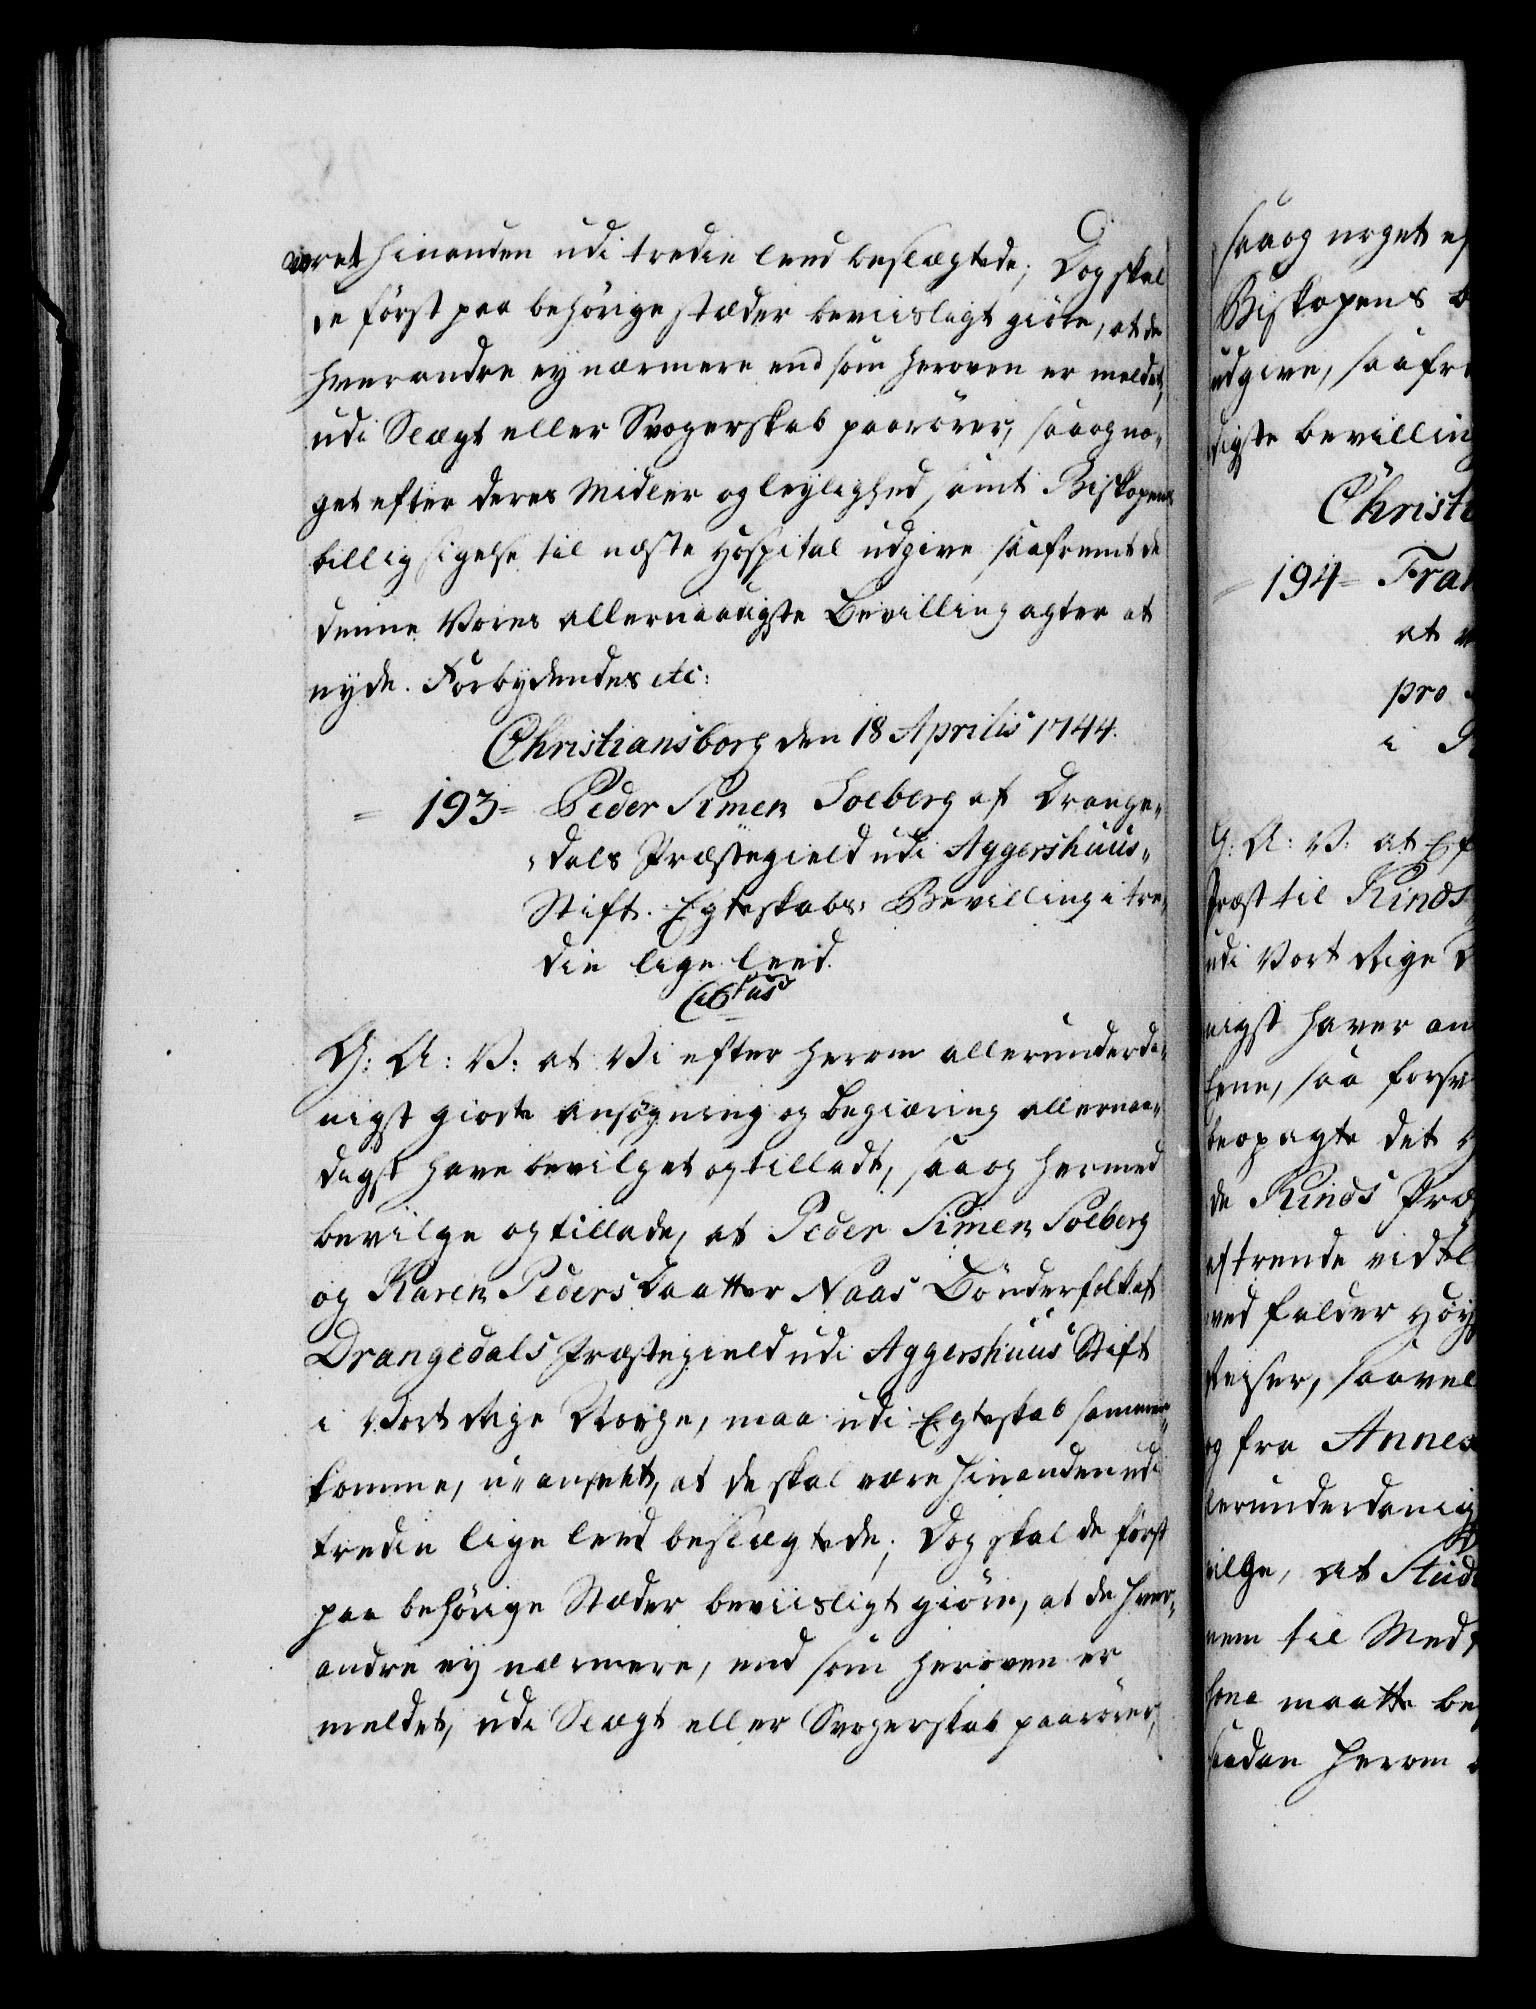 været hinanden udi tredie leed beslægtede; Dog skal
de først paa behörige stæder beviisligt giöre, at de
hverandre ey nærmere end som heroven er meldet,
udi Slægt eller Svogerskab paarörer, saa og no„
get efter deres Midler og leylighed, samt Biskopens
billig sigelse til næste Hospital udgive, saafremt de
denne Vores allernaadigste Bevilling agter at
nyde. Forbydendes etc:
Christiansborg den 18 Aprilis 1744.
= 193 = Peder Simen Soeberg af Drange„
„dals Præstegield udi Aggershuus„
Stift. Egteskabs: Bevilling i tre„
die lige leed.
G: A: V: at Vi efter herom allerunderda„
nigst giorte Ansögning og Begiæring allernaa„
digst have bevilget og tilladt, saa og hermed
bevilge og tillade, at Peder Simen Soeberg
og Karen Peders Daatter Naas Bönderfolk af
Drangedals Præstegield udi Aggershuus Stift
i Vort Rige Norge, maa udi Egteskab sammen„
komme, u„anseet, at de skal være hinanden udi
tredie lige leed beslægtede; Dog skal de först
paa behörige Stæder beviisligt giöre, at de hver„
andre ey nærmere, end som heroven er
meldet, udi Slægt eller Svogerskab paarörer,
saa og noget ef
Biskopens
udgive, saafre
digste bevilling
Christi
= 194 = Fran
at
pro
i
G: A: V: at Ef
Præst til Kinds
udi Vort Rige
nigst haver an
lene, saa forsv
de Kinds Præ
aftrende vidtl
ved falder Höy
Reyser, saavel
og fra Annex
lerunderdanig
vilge, at Stud
nem til Med
sone maatte be
saadan herom